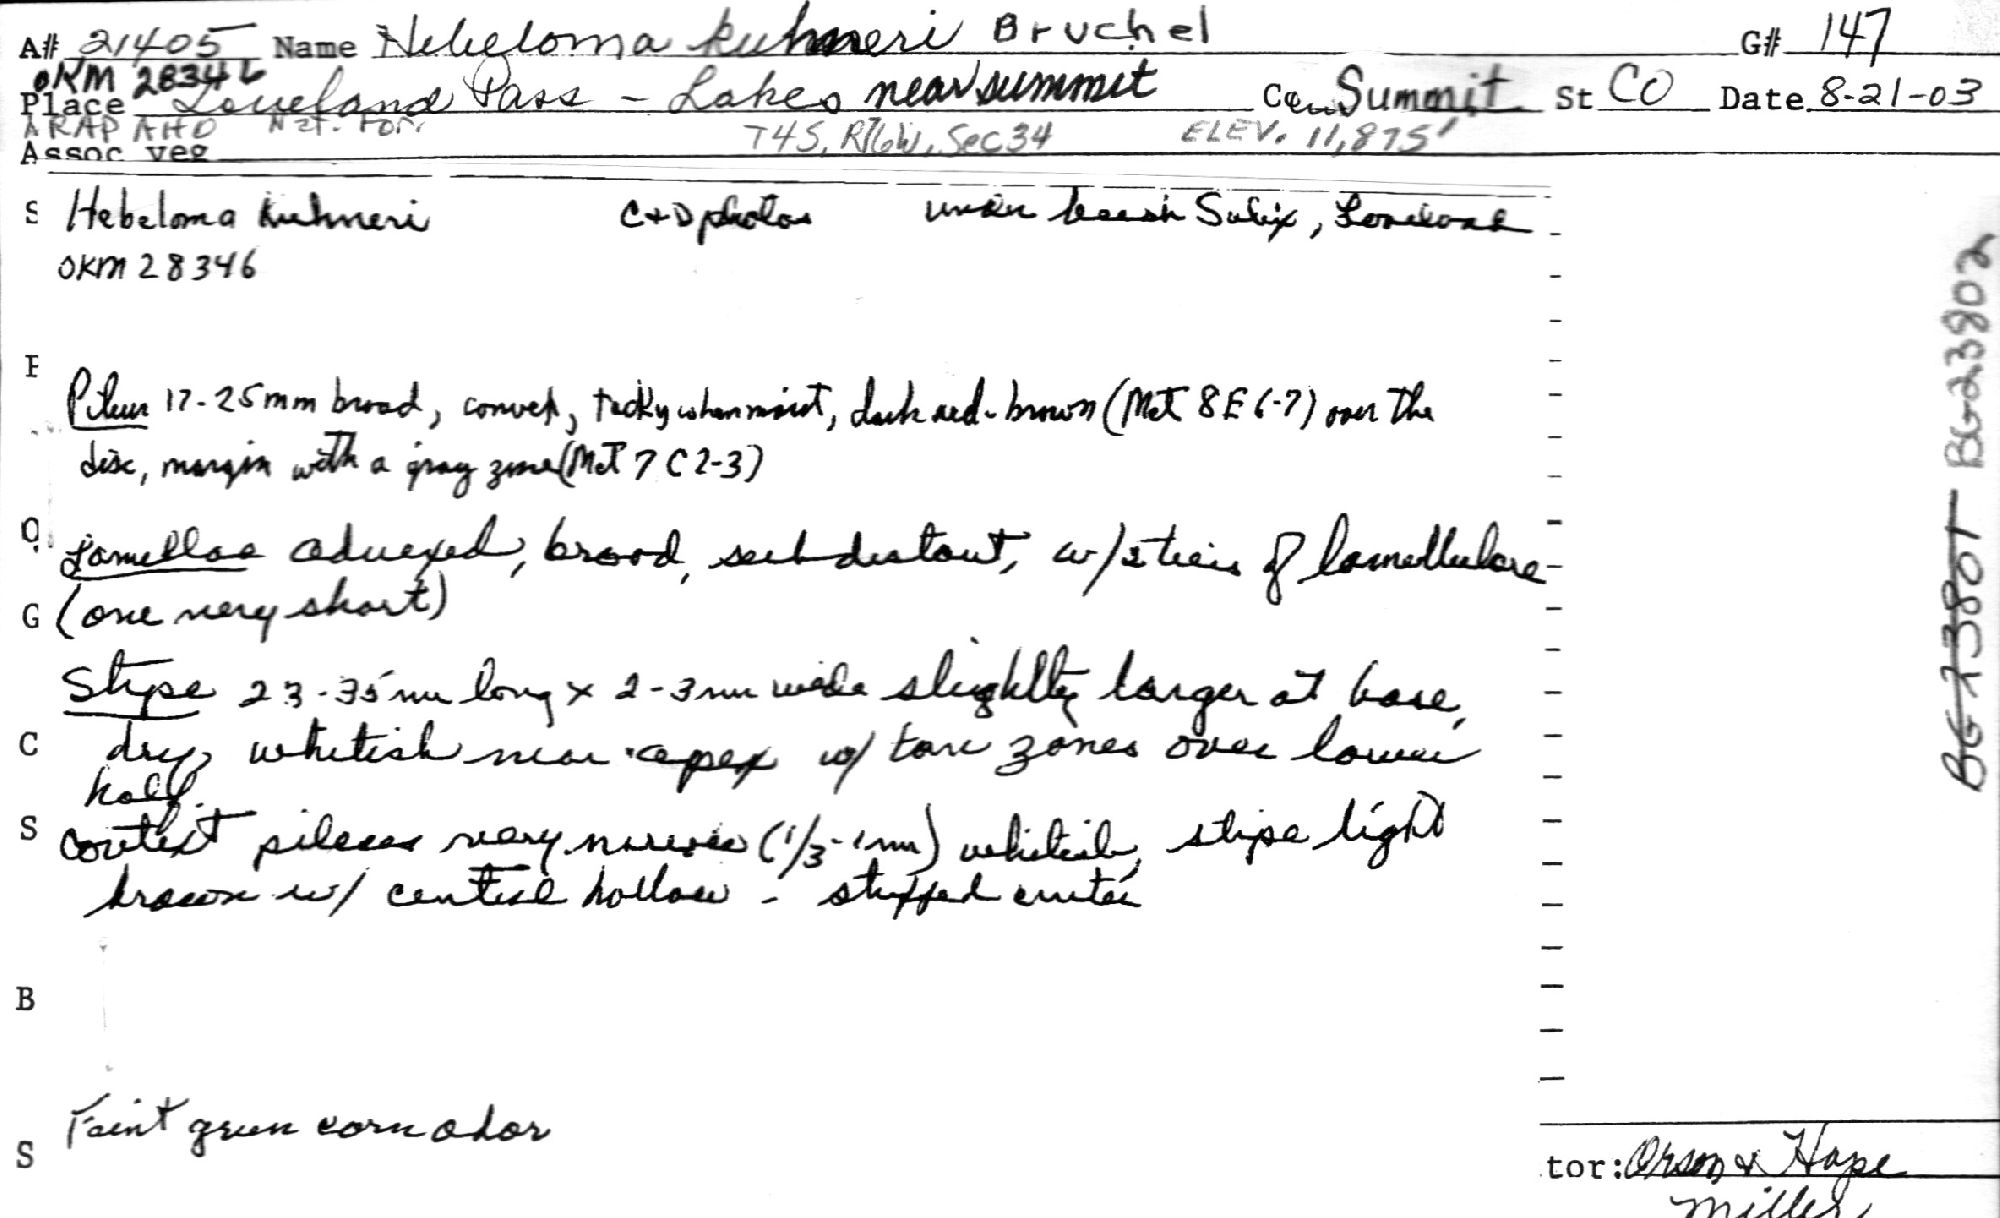 A# 21405 Name Hebeloma kuhneri Bruchel G# 147
OKM 28346
Place Loveland Pass - Lakes near summit Co. Summit St CO Date 8-21-03
ARAPAHO Nat. For. T4S, R76W, Sec 34 ELEV. 11,875'
Assoc veg
S Hebeloma kuhneri C+D photos under Salix, Loveland
OKM 28346
Pileus 17-25mm broad, convex, tacky when moist, dark red-brown (Met 8E6-7) over the
disc, margin with a gray zone (Met 7C2-3)
Lamellae adnexed, broad, subdistant, w/2 tiers of lamellulae
G (one very short)
Stipe 23-35mm long x 2-3mm wide slightly larger at base,
C dry, whitish near apex w/ tan zones over lower
half.
S Context pileus very narrow (1/3-1mm) whitish, stipe light
brown w/ central hollow - stuffed center
B
Faint green corn odor
S
tor: Orson & Hope
Miller
BG 23801 BG23802